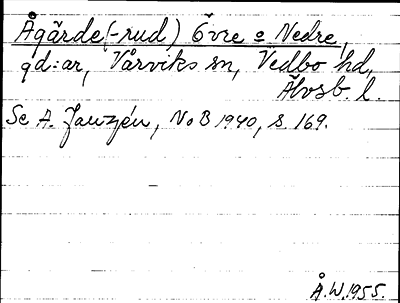 Ågärde(-rud) Övre o Nedre,
gd:ar, Vårviks sn, Vedbo hd,
Älvsb. l.
Se A. Janzén, NoB 1940, s. 169.
Å.W. 1955.